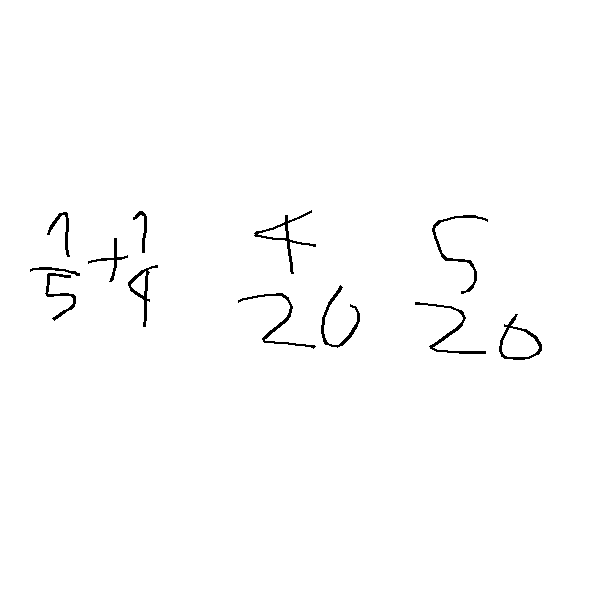 1/5 + 1/4
4
20
5
20